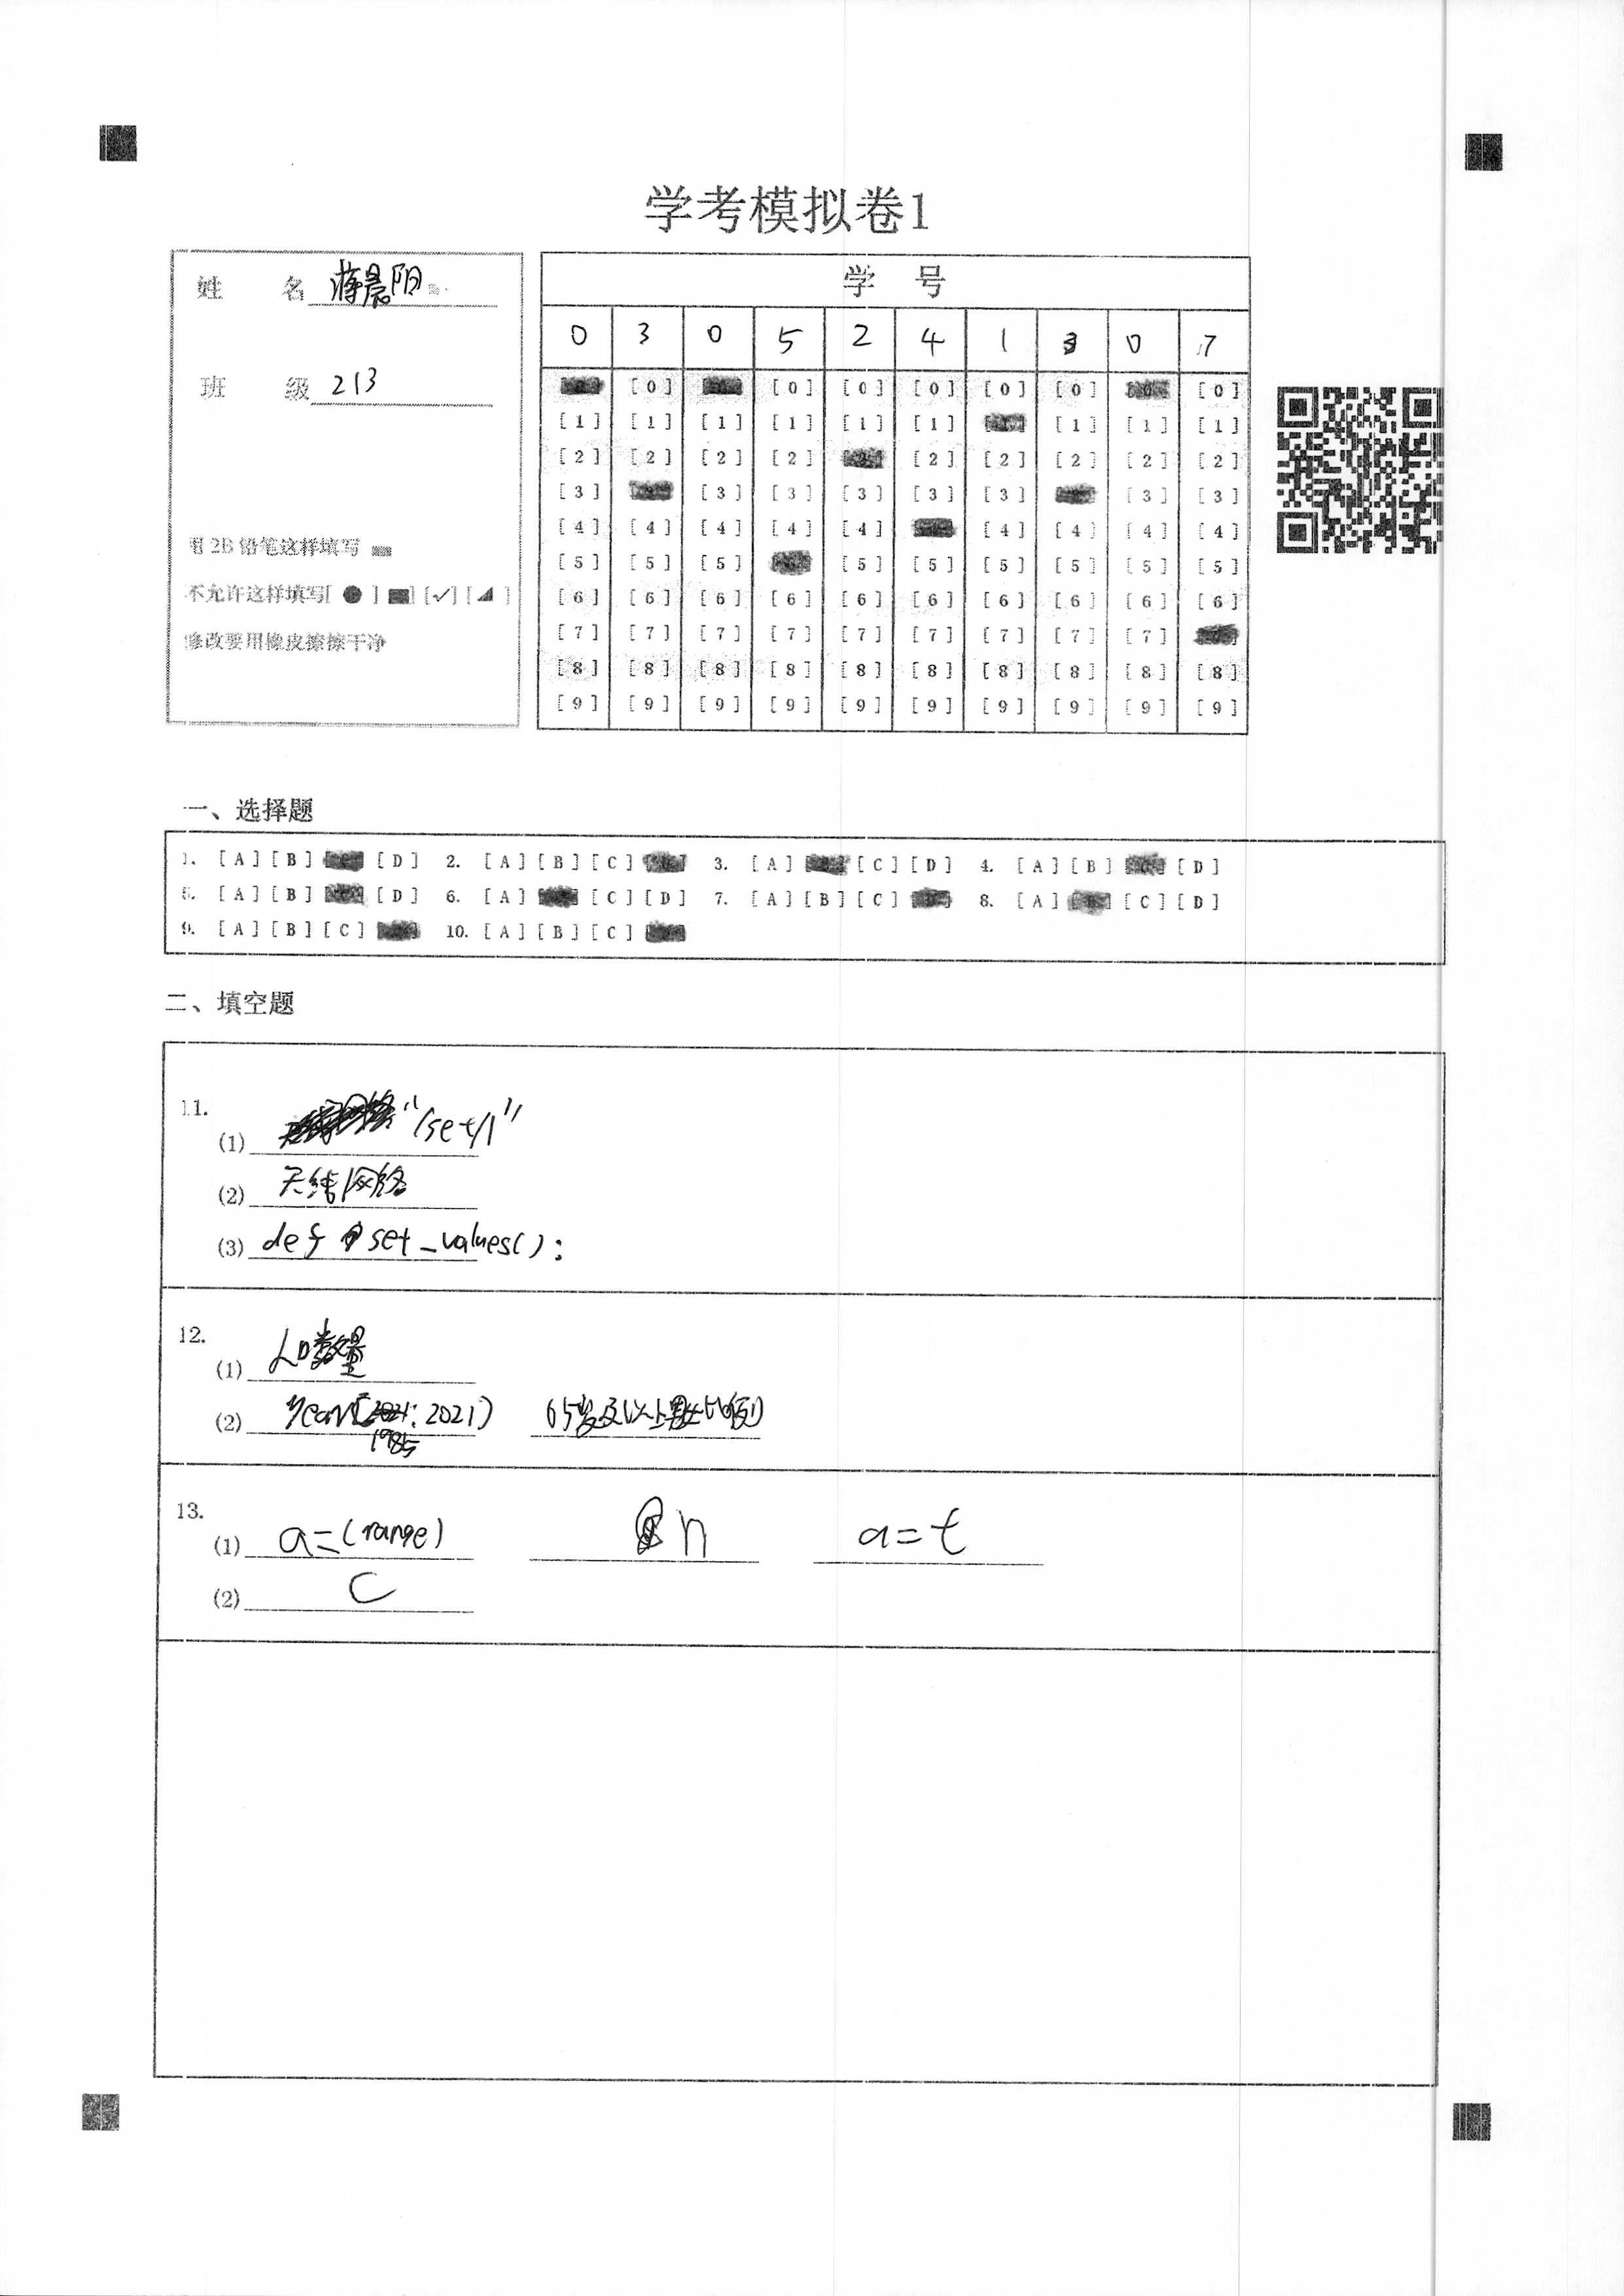 学考模拟卷1
姓 名 蒋晨阳
班 级 213
用2B铅笔这样填写
不允许这样填写[●] [✓] [ ]
修改要用橡皮擦擦干净
学 号
0 3 0 5 2 4 1 3 0 7
[0] [0] [0] [0] [0] [0] [0]
[1] [1] [1] [1] [1] [1] [1] [1] [1]
[2] [2] [2] [2] [2] [2] [2] [2] [2]
[3] [3] [3] [3] [3] [3] [3] [3]
[4] [4] [4] [4] [4] [4] [4] [4] [4]
[5] [5] [5] [5] [5] [5] [5] [5] [5]
[6] [6] [6] [6] [6] [6] [6] [6] [6] [6]
[7] [7] [7] [7] [7] [7] [7] [7] [7]
[8] [8] [8] [8] [8] [8] [8] [8] [8] [8]
[9] [9] [9] [9] [9] [9] [9] [9] [9] [9]
一、选择题
1. [A] [B] [D] 2. [A] [B] [C] 3. [A] [C] [D] 4. [A] [B] [D]
5. [A] [B] [D] 6. [A] [C] [D] 7. [A] [B] [C] 8. [A] [C] [D]
9. [A] [B] [C] 10. [A] [B] [C]
二、填空题
11.
(1) "/set/1"
(2) 无线网络
(3) def set_values():
12.
(1) 人口数量
(2) year[1985: 2021) 65岁及以上男女比例
13.
(1) a=(range) n a=t
(2) C